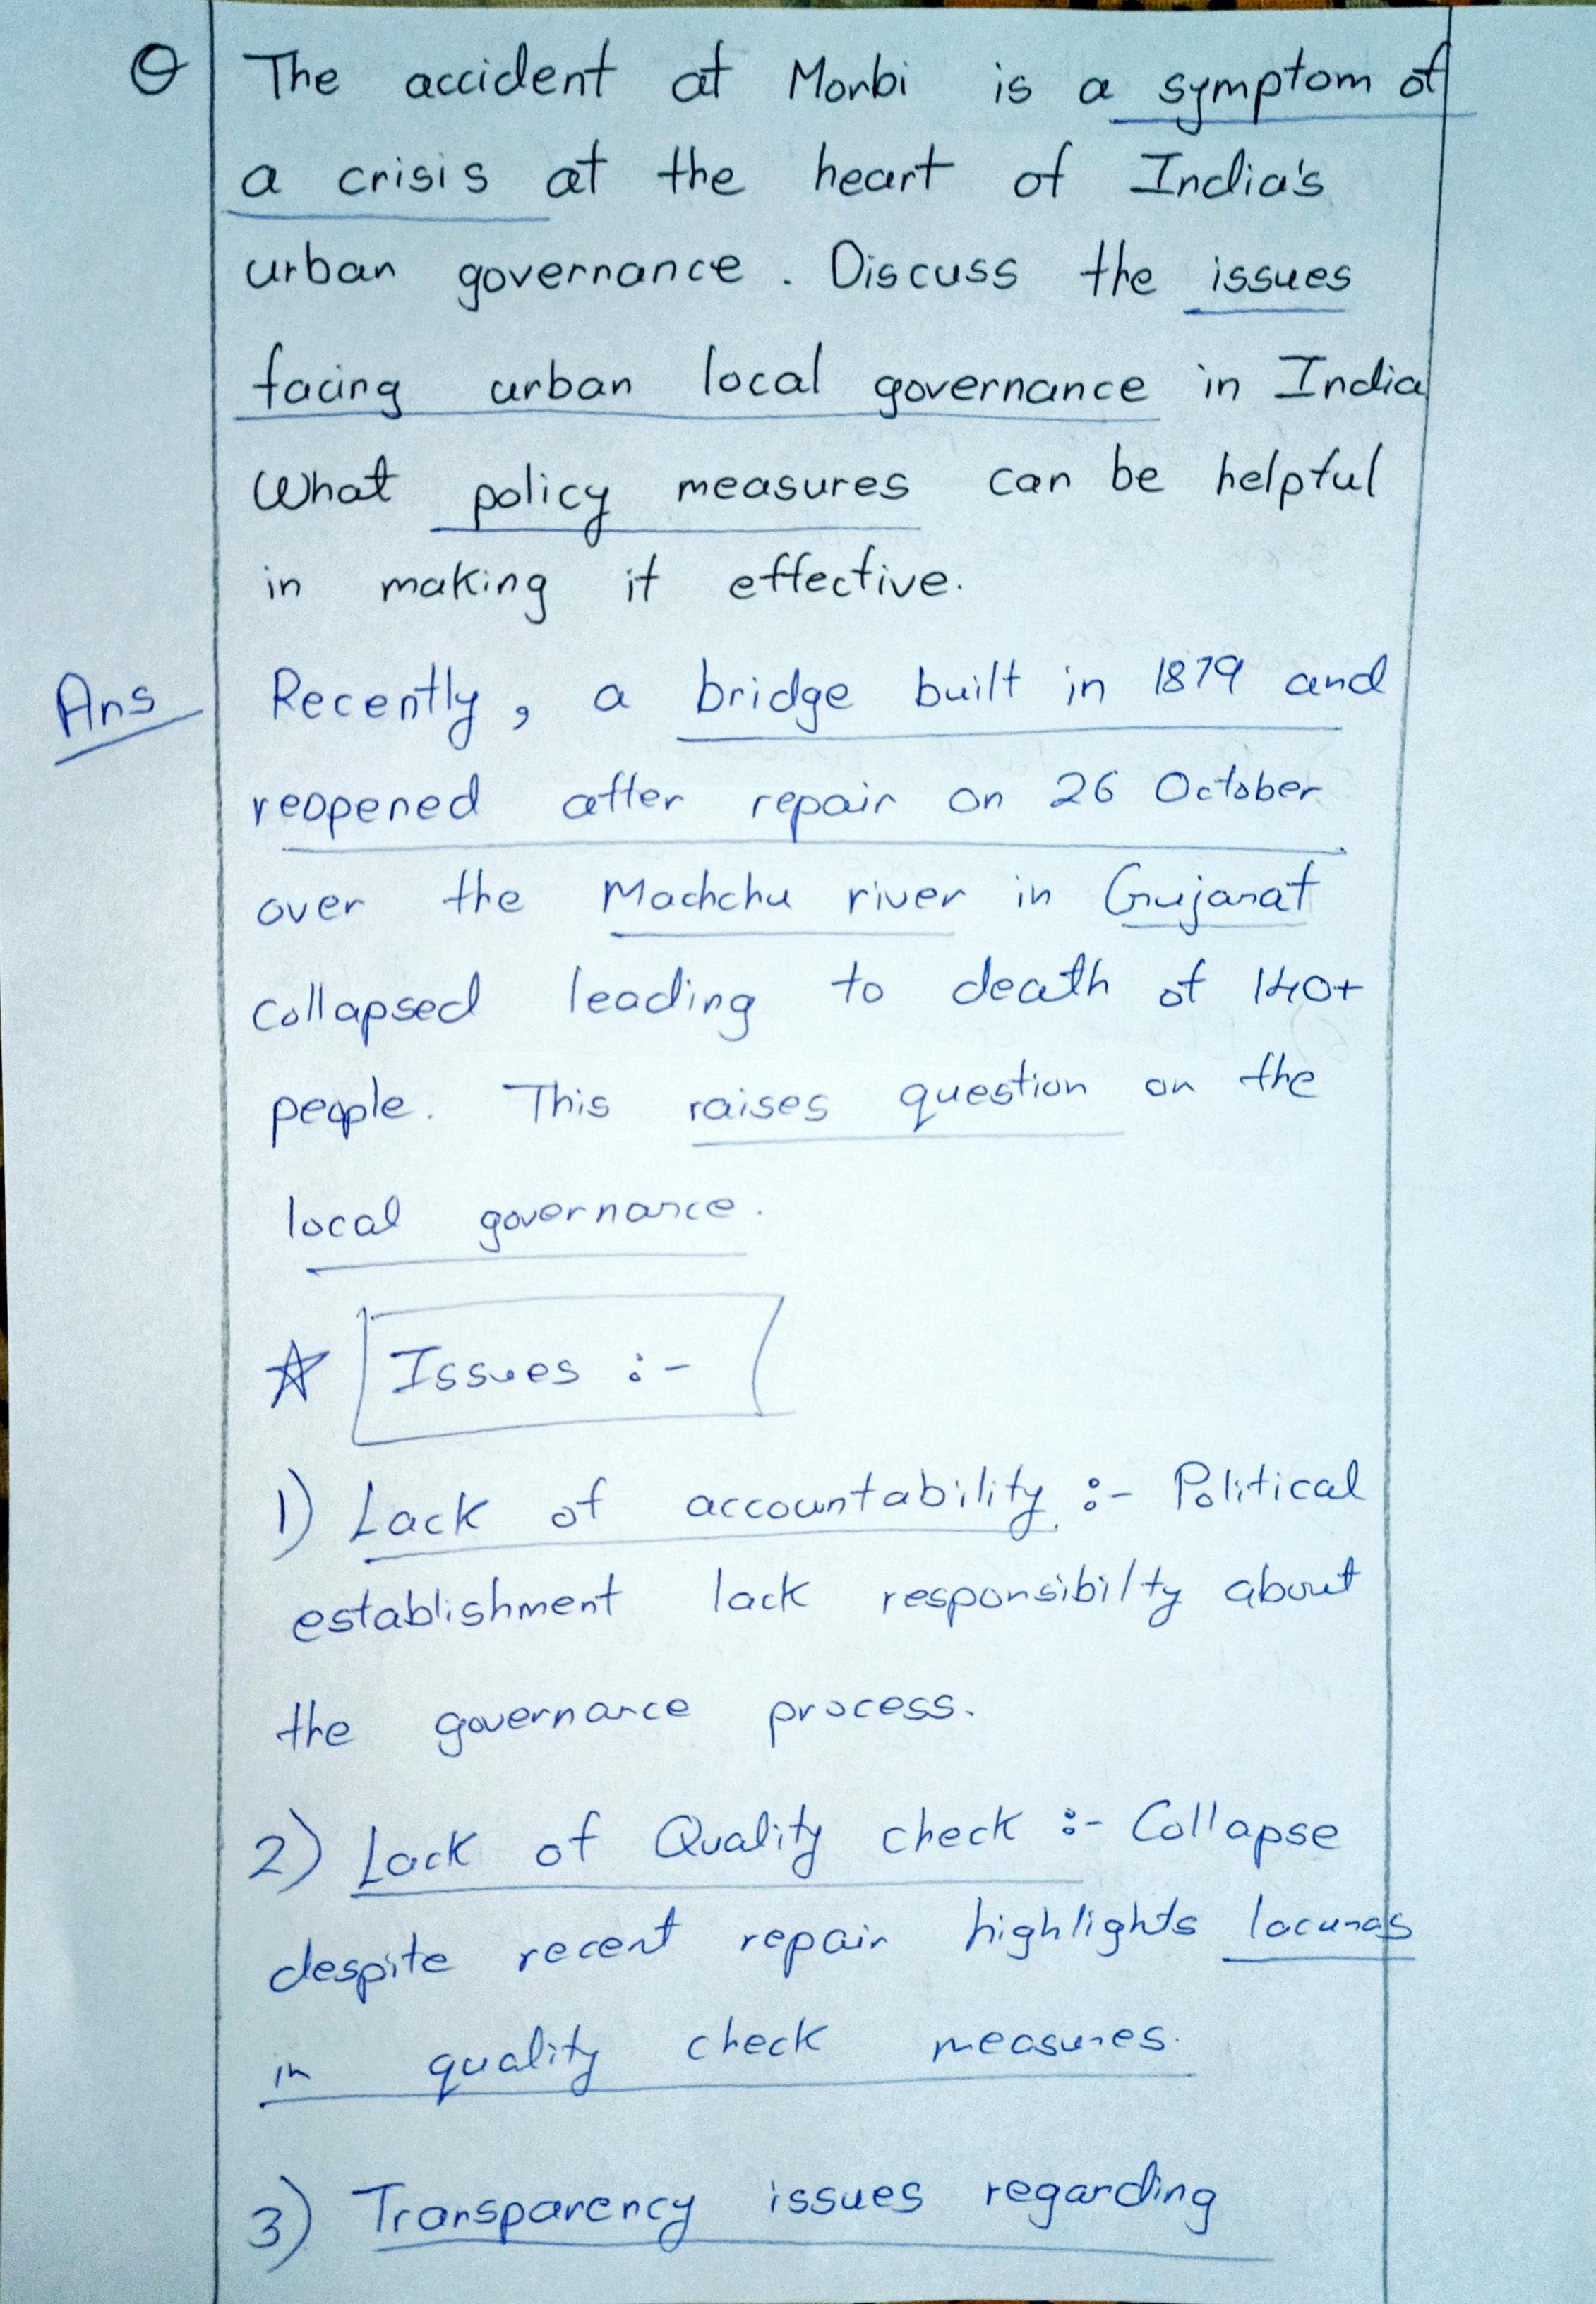 Q The accident at Morbi is a symptom of
a crisis at the heart of India's
urban governance. Discuss the issues
facing urban local governance in India
What policy measures can be helpful
in making it effective.
Ans Recently, a bridge built in 1879 and
reopened after repair on 26 October
over the Machchu river in Gujarat
collapsed leading to death of 140+
people. This raises question on the
local governance.
☆ Issues :-
1) Lack of accountability :- Political
establishment lack responsibilty about
the governance process.
2) Lack of Quality check :- Collapse
despite recent repair highlights lacunas
in quality check measures.
3) Transparency issues regarding